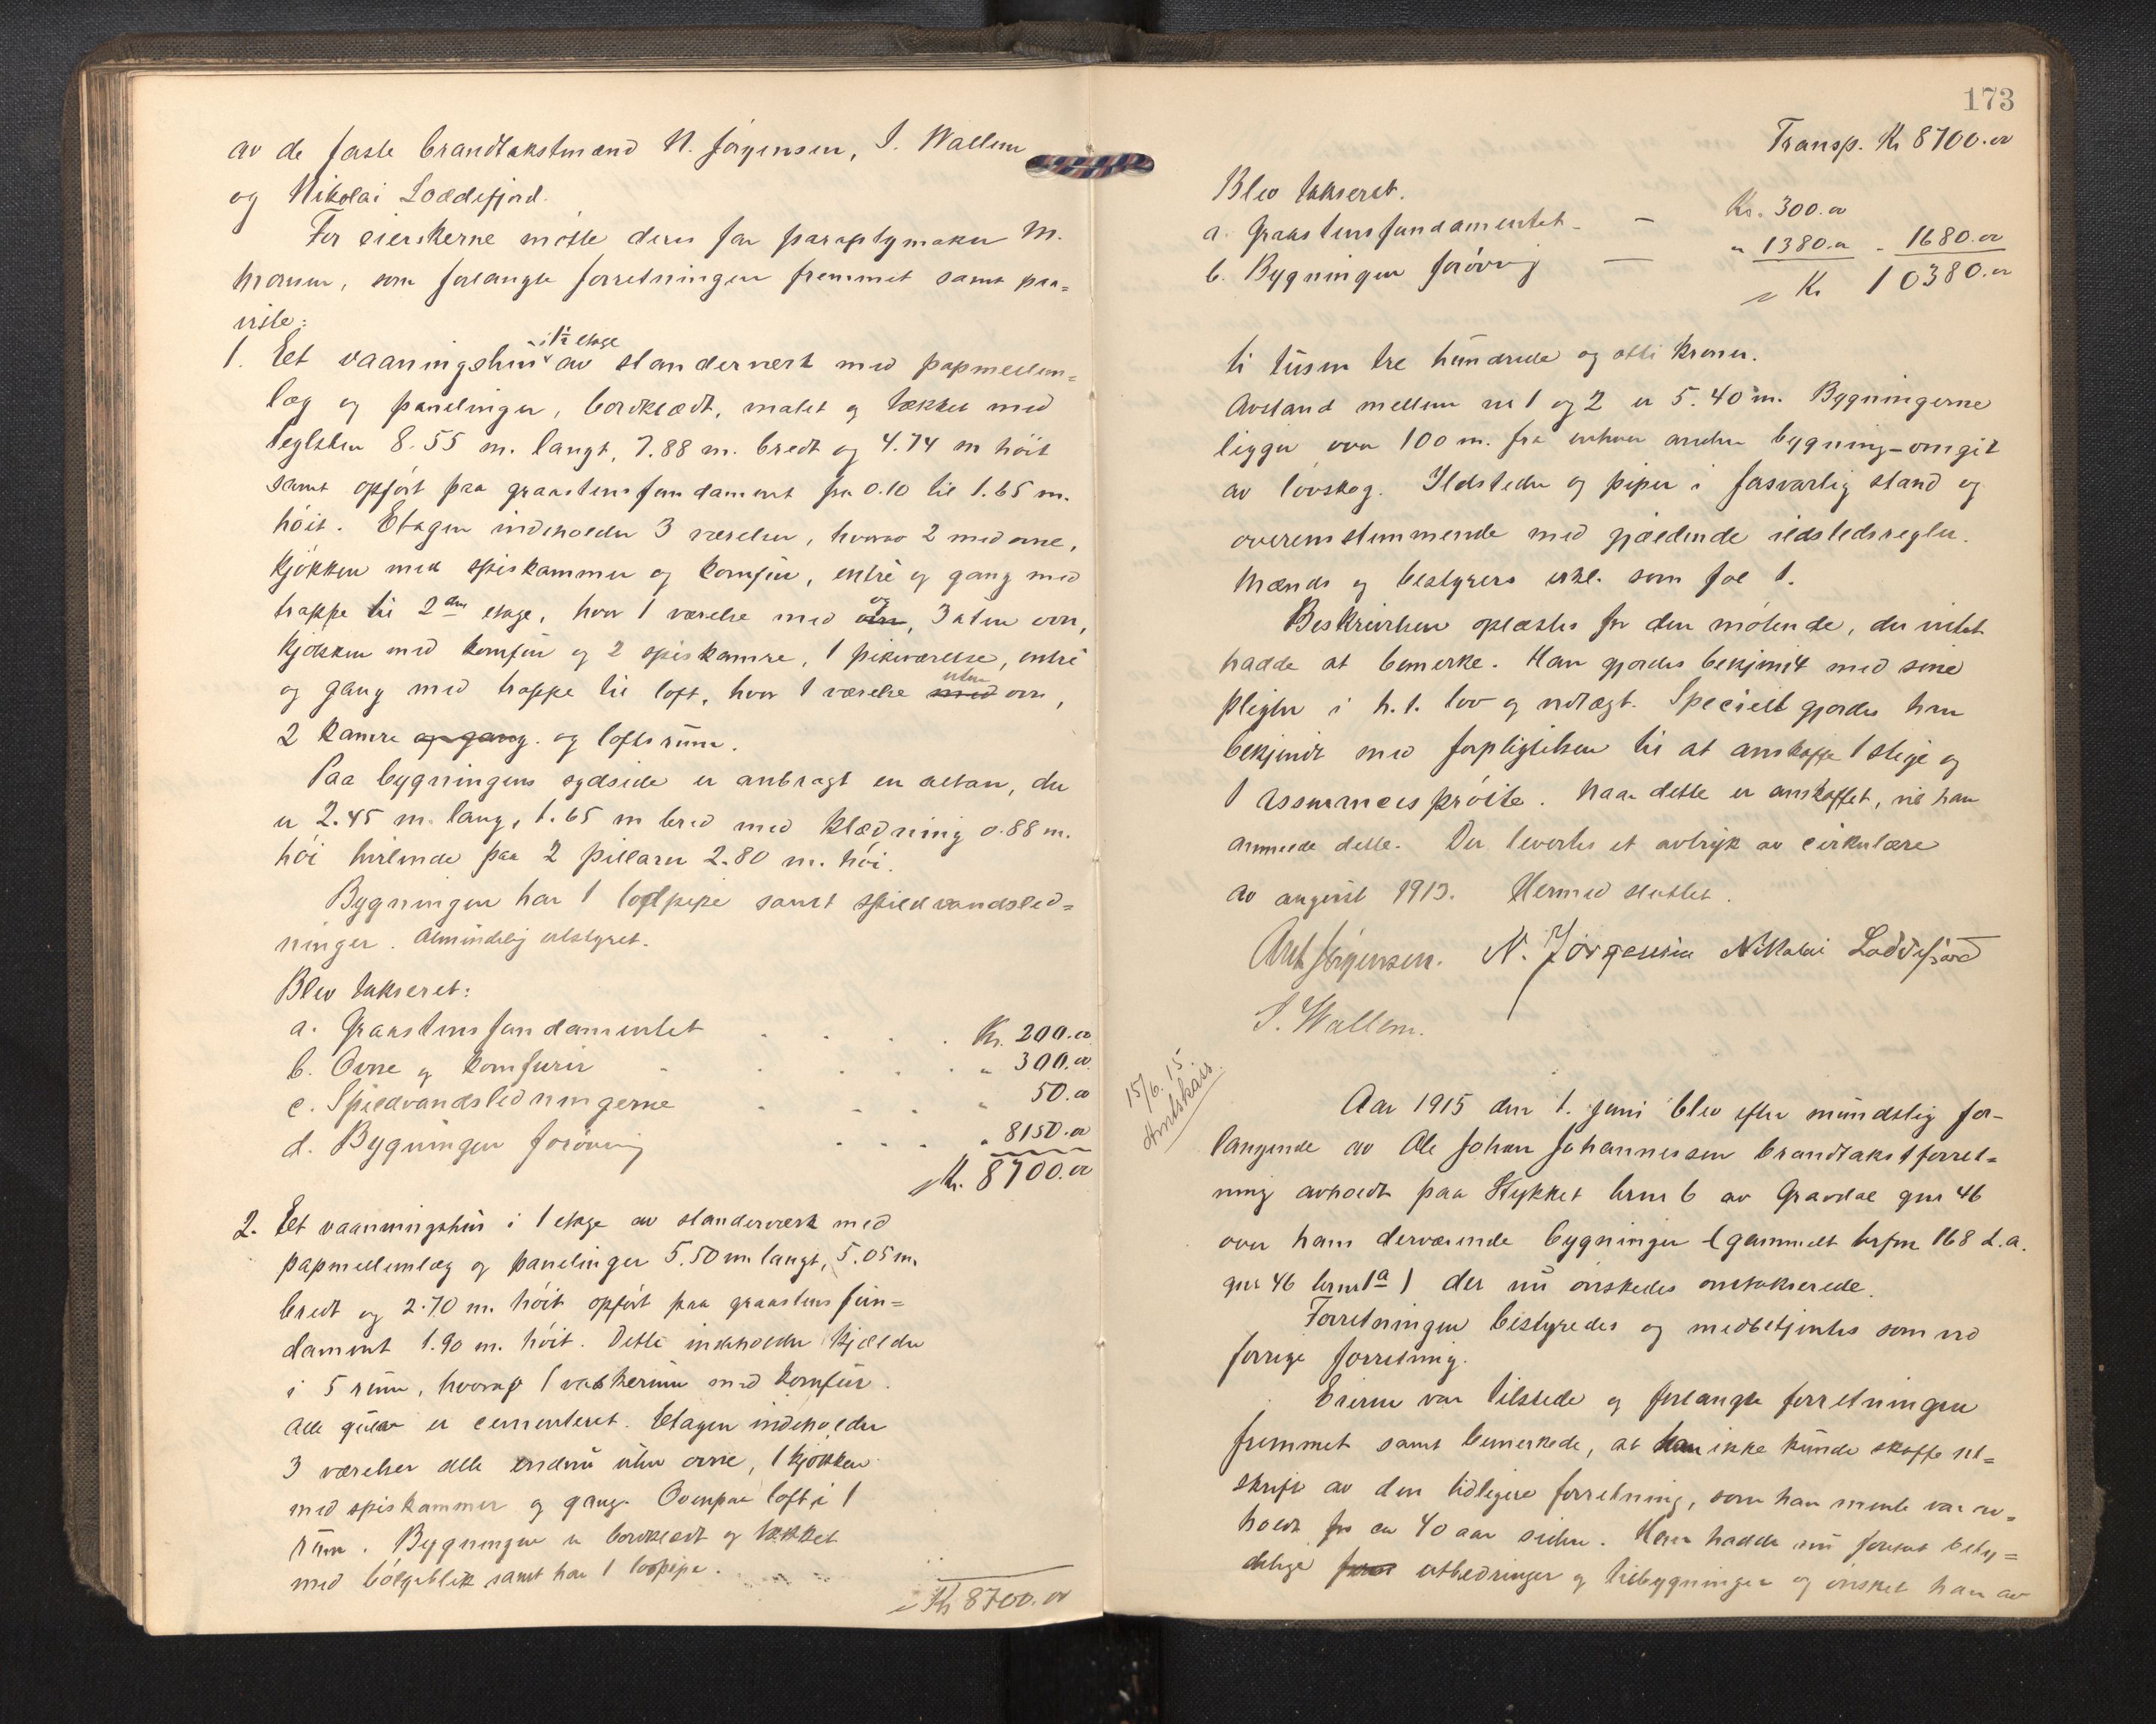 av de faste brandtakstmænd N. Jørgensen, S. Wallem
og Nikolai Loddefjord.
For eierskerne møtte deres far paraplymaker M.
Monsen, som forlangte forretningen fremmet samt paa=
viste:
i 1½ etage
1. Et vaaningshus av stenderverk med papmellem=
læg og panelinger, bordklædt, malet og tækket med
teglsten 8.55 m. langt, 7.88 m. bredt og 4.74 m høit
samt opført paa graastensfundament fra 0.10 til 1.65 m.
høit. Etagen indeholder 3 værelser, hvorav 2 med ovne,
kjøkken med spiskammer og komfur, entré og gang med
trappe til 2den etage, hvor 1 værelse med ovn, og 3 uten ovn,
kjøkken med komfur og 2 spiskamre, 1 pikeværelse, entré
og gang med trappe til loft, hvor 1 værelse med uten ovn,
2 kamre og gang. og loftsrum.
Paa bygningens sydside er anbragt en altan, der
er 2.45 m. lang, 1.65 m bred med klædning 0.88 m.
høi hvilende paa 2 pillarer 2.80 m. høi.
Bygningen har 1 lodpipe samt spildvandsled=
ninger. Almindelig utstyret.
Blev takseret:
a. Graastensfundamentet . . . . Kr. 200.00
b. Ovne og komfurer . . . . " 300.00
c. Spildvandsledningerne . . . " 50.00
d. Bygningen forøvrig . . . . " 8150.00
Kr. 8700.00
2. Et vaaningshus i 1 etage av stenderverk med
papmellemlæg og panelinger 5.50 m. langt, 5.05 m.
bredt og 2.70 m. høit opført paa graastens fun=
dament 1.90 m. høit. Dette indeholder kjælder
i 5 rum, hvorav 1 vaskerum med komfur.
Alle gulve er cementeret. Etagen indeholder
3 værelser alle endnu uten ovne, 1 kjøkken
med spiskammer og gang. Ovenpaa loft i 1
rum. Bygningen er bordklædt og tækket
med bølgeblik samt har 1 lodpipe.
Kr 8700.00
173
Transp. Kr 8700.00
Blev takseret.
a. Graastensfundamentet - — Kr. 300.00
b. Bygningen forøvrig — " 1380.00 - 1680.00
Kr 10380.00
ti tusen tre hundrede og otti kroner.
Avstand mellem nr 1 og 2 er 5.40 m. Bygningerne
ligger over 100 m. fra enhver anden bygning - omgit
av løvskog. Ildsteder og piper i forsvarlig stand og
overensstemmende med gjældende ildstedsregler.
Mænds og bestyrers erkl. som fol 1.
Beskrivelsen oplæstes for den møtende, der intet
hadde at bemerke. Han gjordes bekjendt med sine
pligter i h. t. lov og vedtægt. Specielt gjordes han
bekjendt med forpligtelsen til at anskaffe 1 stige og
1 assurancesprøite. Naar dette er anskaffet, vil han
anmelde dette. Der levertes et avtryk av cirkulære
av august 1913. Hermed sluttet.
Arnt Jørgensen. N. Jørgensen Nikolai Loddefjord
S. Wallem.
15/6. 15
Amtskass.
Aar 1915 den 1. juni blev efter mundtlig for-
langende av Ole Johan Johannessen brandtakstforret=
ning avholdt paa Stykket brnr 6 av Gravdal gnr 46
over hans derværende bygninger (gammelt brfnr 168 L.a.
gnr 46 brnr 1a) der nu ønskedes omtakserede.
Forretningen bestyredes og medbetjentes som ved
forrige forretning.
Eieren var tilstede og forlangte forretningen
fremmet samt bemerkede, at han ikke kunde skaffe ut=
skrift av den tidligere forretning, som han mente var av=
holdt for ca 40 aar siden. Han hadde nu foretat bety=
delige utbedringer og tilbygninger og ønsket han av